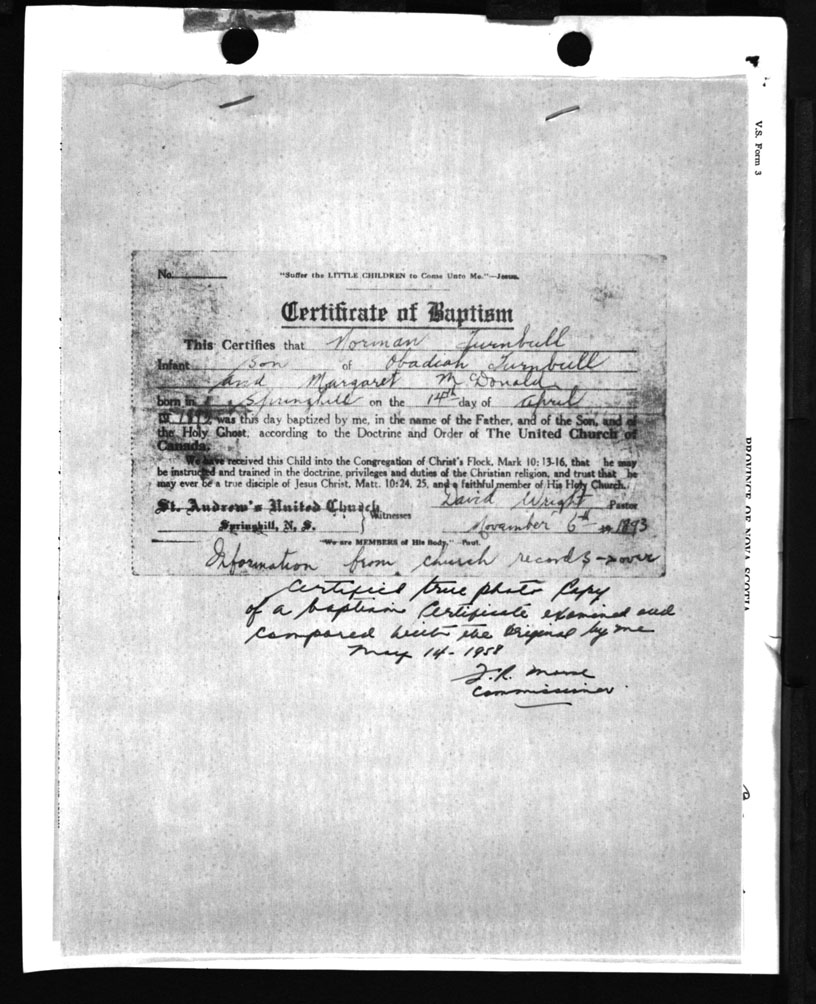 V.S. Form 3
No.
"Suffer the LITTLE CHILDREN to Come Unto Me."—Jesus.
Certificate of Baptism
This Certifies that Norman Turnbull
Infant son of Obadiah Turnbull
and Margaret McDonald
born in Springhill on the 14th day of April
1893, was this day baptized by me, in the name of the Father, and of the Son, and of
the Holy Ghost, according to the Doctrine and Order of The United Church of
Canada.
We have received this Child into the Congregation of Christ's Flock, Mark 10: 13-16, that he may
be instructed and trained in the doctrine, privileges and duties of the Christian religion, and trust that he
may ever be a true disciple of Jesus Christ, Matt. 10:24, 25, and a faithful member of His Holy Church.
David Wright Pastor
St. Andrew's United Church
Springhill, N. S. } Witnesses
November 6th 1893
"We are MEMBERS of His Body."—Paul.
Information from church records - over
Certified true photo Copy
of a baptism Certificate examined and
compared with the Original by me
May 14 - 1958
Commissioner
PROVINCE OF NOVA SCOTIA